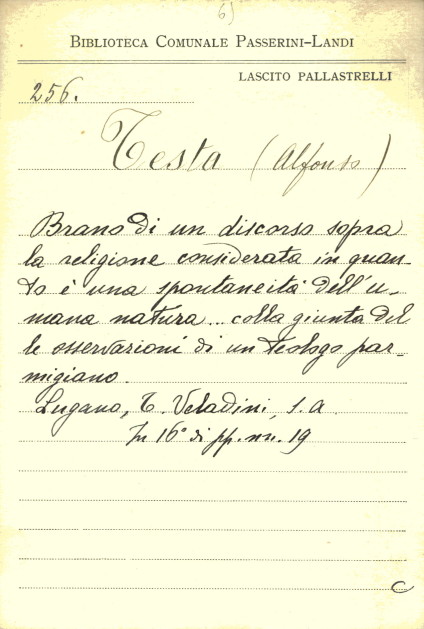 6)
BIBLIOTECA COMUNALE PASSERINI-LANDI
LASCITO PALLASTRELLI
256.
Testa (Alfonso)
Brano di un discorso sopra
la religione considerata in quan-
to è una spontaneità dell'u-
mana natura... colla giunta del
le osservazioni di un teologo par-
migiano.
Lugano, T. Veladini, s. a.
In 16° di pp. nn. 19
C